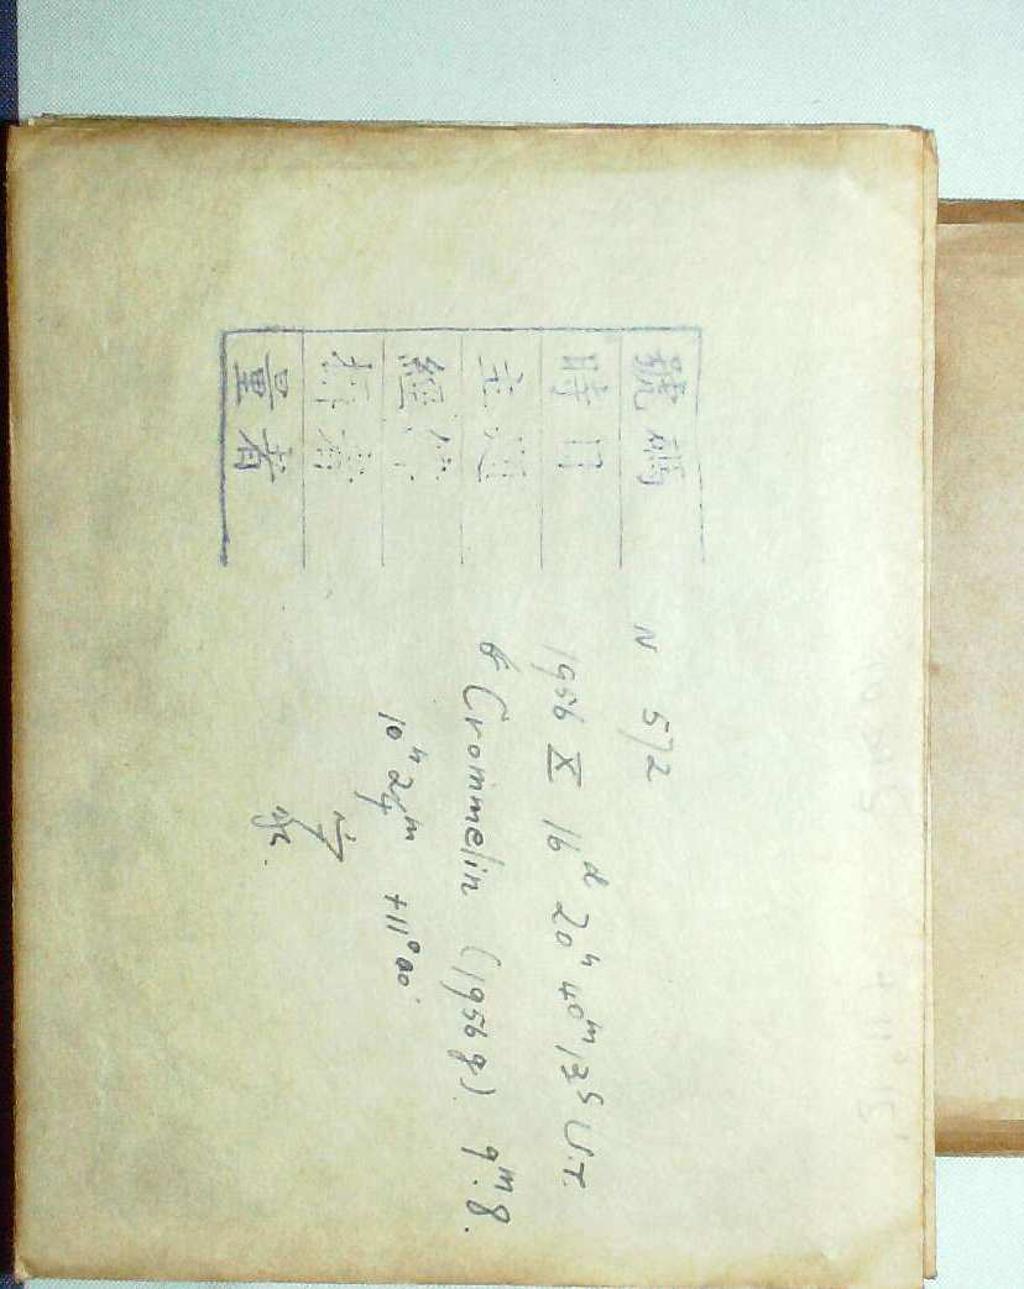 號碼 N 572
時日 1956 X 16d 20h 40m 13s U.T.
Crommelin (1956g). 9m.8.
經緯 10h 24m +11°00'
者
量者